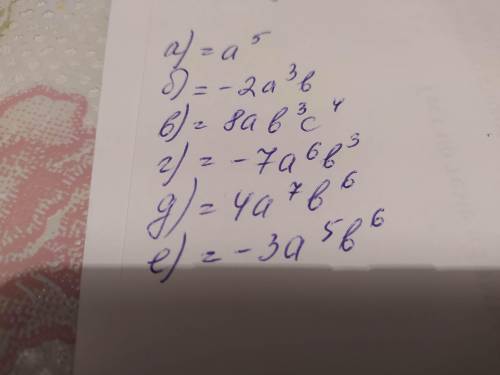 а) = a⁵
б) = -2a³b
в) = 8ab³c⁴
г) = -7a⁶b³
д) = 4a⁷b⁶
е) = -3a⁵b⁶